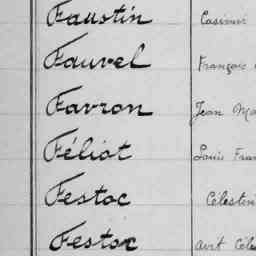 Faustin Casimir
Fauvel François
Favron Jean Ma
Féliot Louis Fran
Festoc Célestin
Festoc